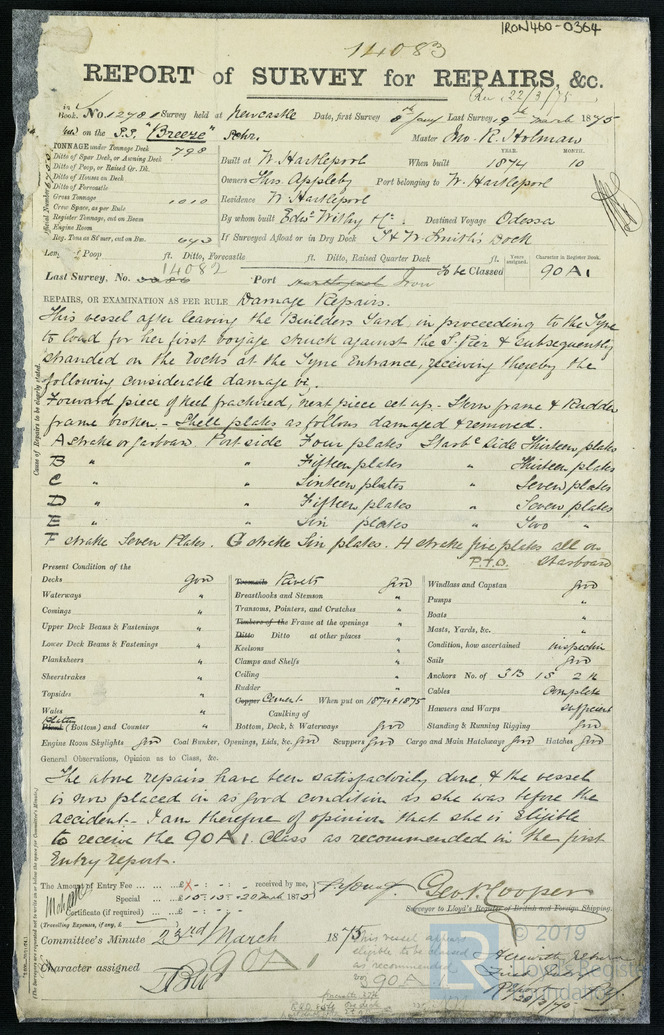 IRON460-0364
14083
REPORT of SURVEY for REPAIRS, &c.
Rec 22/3/75
in Book. No. 12781 Survey held at Newcastle Date, first Survey 8th Jany Last Survey 19th March 1875
on the S.S. "Breeze" Schr. Master Geo. R. Holman
TONNAGE under Tonnage Deck 798
Ditto of Spar Deck, or Awning Deck
Ditto of Poop, or Raised Qr. Dk.
Ditto of Houses on Deck
Ditto of Forecastle
Gross Tonnage 1010
Crew Space, as per Rule
Register Tonnage, cut on Beam
Engine Room
Reg. Tons as St'mer, cut on Bm.
YEAR. MONTH.
Built at W. Hartlepool When built 1874 10
Owners Thos Appleby Port belonging to W. Hartlepool
Residence W. Hartlepool
By whom built Edwd Withy & Co. Destined Voyage Odessa
If Surveyed Afloat or in Dry Dock T & W Smith's Dock
Length of Poop ft. Ditto, Forecastle ft. Ditto, Raised Quarter Deck ft. Years assigned. Character in Register Book.
14082
Last Survey, No. Port Iron To be Classed 90A1
REPAIRS, OR EXAMINATION AS PER RULE Damage Repairs.
Cause of Repairs to be clearly stated.
This vessel after leaving the Builders Yard in proceeding to the Tyne
to load for her first voyage struck against the S. Pier & subsequently
stranded on the rocks at the Tyne Entrance, receiving thereby the
following considerable damage viz.
Forward piece of keel fractured, next piece set up - Stern frame & Rudder
frame broken - Shell plates as follows damaged & removed.
A strake or garboard Port side Four plates Starbd Side Thirteen plates
B " " Fifteen plates " Thirteen plates
C " " Sixteen plates " Seven plates
D " " Fifteen plates " Seven plates
E " " Six plates " Two "
F strake Seven Plates. G strake Six plates. H strake five plates all on
P.T.O. Starboard
Present Condition of the
Decks good
Waterways "
Comings "
Upper Deck Beams & Fastenings "
Lower Deck Beams & Fastenings "
Planksheers "
Sheerstrakes "
Topsides "
Wales "
Plating (Bottom) and Counter "
Treenails Rivets good
Breasthooks and Stemson "
Transoms, Pointers, and Crutches "
Timbers of the Frame at the openings "
Ditto Ditto at other places "
Keelsons "
Clamps and Shelfs "
Ceiling "
Rudder "
Copper Cement When put on 1874 & 1875
Caulking of
Bottom, Deck, & Waterways good
Windlass and Capstan good
Pumps "
Boats "
Masts, Yards, &c. "
Condition, how ascertained inspection
Sails good
Anchors No. of 3B 1S 2K
Cables complete
Hawsers and Warps sufficient
Standing & Running Rigging good
Engine Room Skylights good Coal Bunker, Openings, Lids, &c. good Scuppers good Cargo and Main Hatchways good Hatches good
General Observations, Opinion as to Class, &c.
The above repairs have been satisfactorily done & the vessel
is now placed in as good condition as she was before the
accident - I am therefore of opinion that she is Eligible
to receive the 90A1. Class as recommended in the first
Entry report.
The Amount of Entry Fee £ : : received by me,
Special £10 : 10 : 20 March 1875
Certificate (if required) : :
(Travelling Expenses, if any, £
Geo. P. Cooper
Surveyor to Lloyd's Register of British and Foreign Shipping.
Committee's Minute 23rd March 1875
Character assigned 90A1
This vessel appears
eligible to be classed
as recommended
90A1
© 2019
LR
Lloyd's Register
Foundation